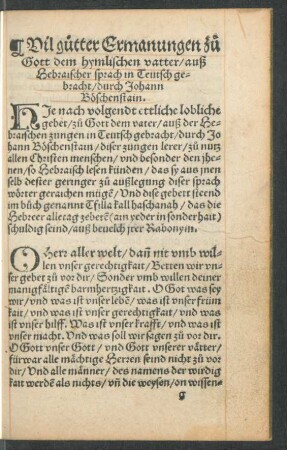 ¶ Vil gůtter Ermanungen zů
Gott dem hymlischen vatter/auß
Hebraischer sprach in Teutsch ge-
bracht/durch Johann
Böschenstain.
HJe nach volgendt ettliche lobliche
gebet/zů Gott dem vater/auß der He-
braischen zungen in Teutsch gebracht/durch Jo
hann Böschenstain/diser zungen lerer/zů nutz
allen Christen menschen/vnd besonder den jhe-
nen/so Hebraisch lesen künden/das sy aus jnen
selb dester geringer zů außlegung diser sprach
wörter geraichen mügē/Vnd dise gebett steend
im bůch genannt Tfilla kall haschanah/das die
Hebreer alle tag zebetē (ain yeder in sonderhait)
schuldig seind/auß beuelch jrer Rabonym.
O Herr aller welt/dañ nit vmb wil-
len vnser gerechtigkait/Betten wir vn-
ser gebet zů vor dir/Sonder vmb willen deiner
manigfåltigē barmhertzigkait. O Got was sey
wir/vnd was ist vnser lebē/was ist vnser frům
kait/vnd was ist vnser gerechtigkait/vnd was
ist vnser hilff. Was ist vnser krafft/vnd was ist
vnser macht. Vnd was soll wir sagen zů vor dir.
O Gott vnser Gott/vnd Gott vnserer våtter/
fürwar alle måchtige Herren seind nicht zů vor
dir/Vnd alle männer/des namens der wirdig
kait werdē als nichts/vñ die weysen/on wissen-
g